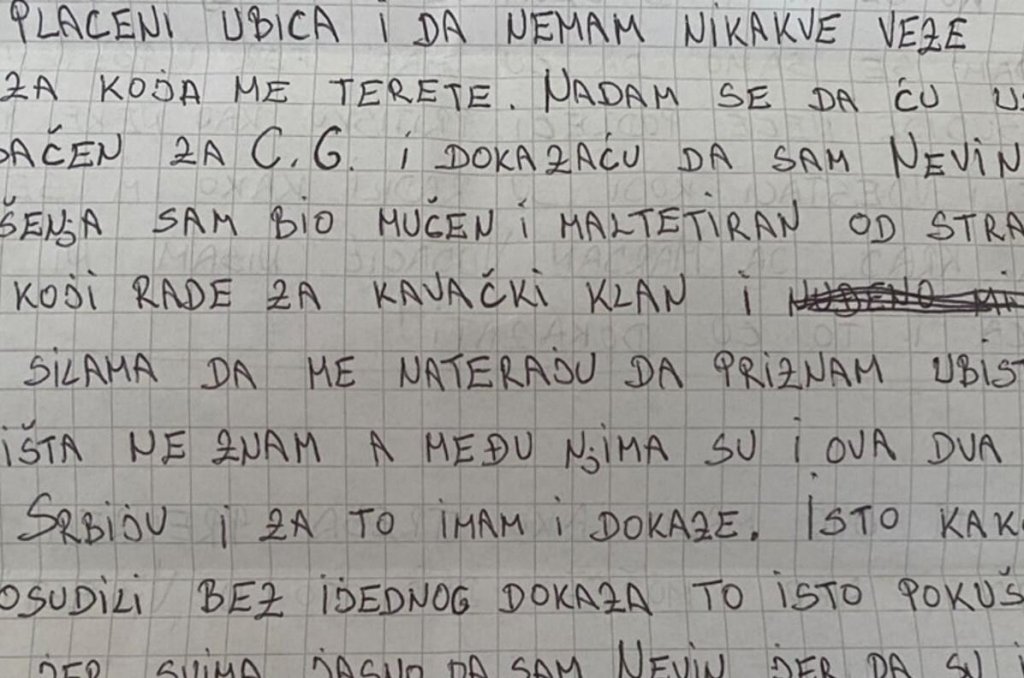 PLAĆENI UBICA I DA NEMAM NIKAKVE VEZE
ZA KOJA ME TERETE. NADAM SE DA ĆU
ZA C.G. I DOKAZAĆU DA SAM NEVIN
SAM BIO MUČEN I MALTETIRAN OD STRA
KOJI RADE ZA KAVAČKI KLAN I
SILAMA DA ME NATERAJU DA PRIZNAM UBIST
IŠTA NE ZNAM A MEĐU NJIMA SU I OVA DVA
SRBIJU I ZA TO IMAM I DOKAZE. ISTO KAK
OSUDILI BEZ IJEDNOG DOKAZA TO ISTO POKUŠ
JER SVIMA JASNO DA SAM NEVIN JER DA SU